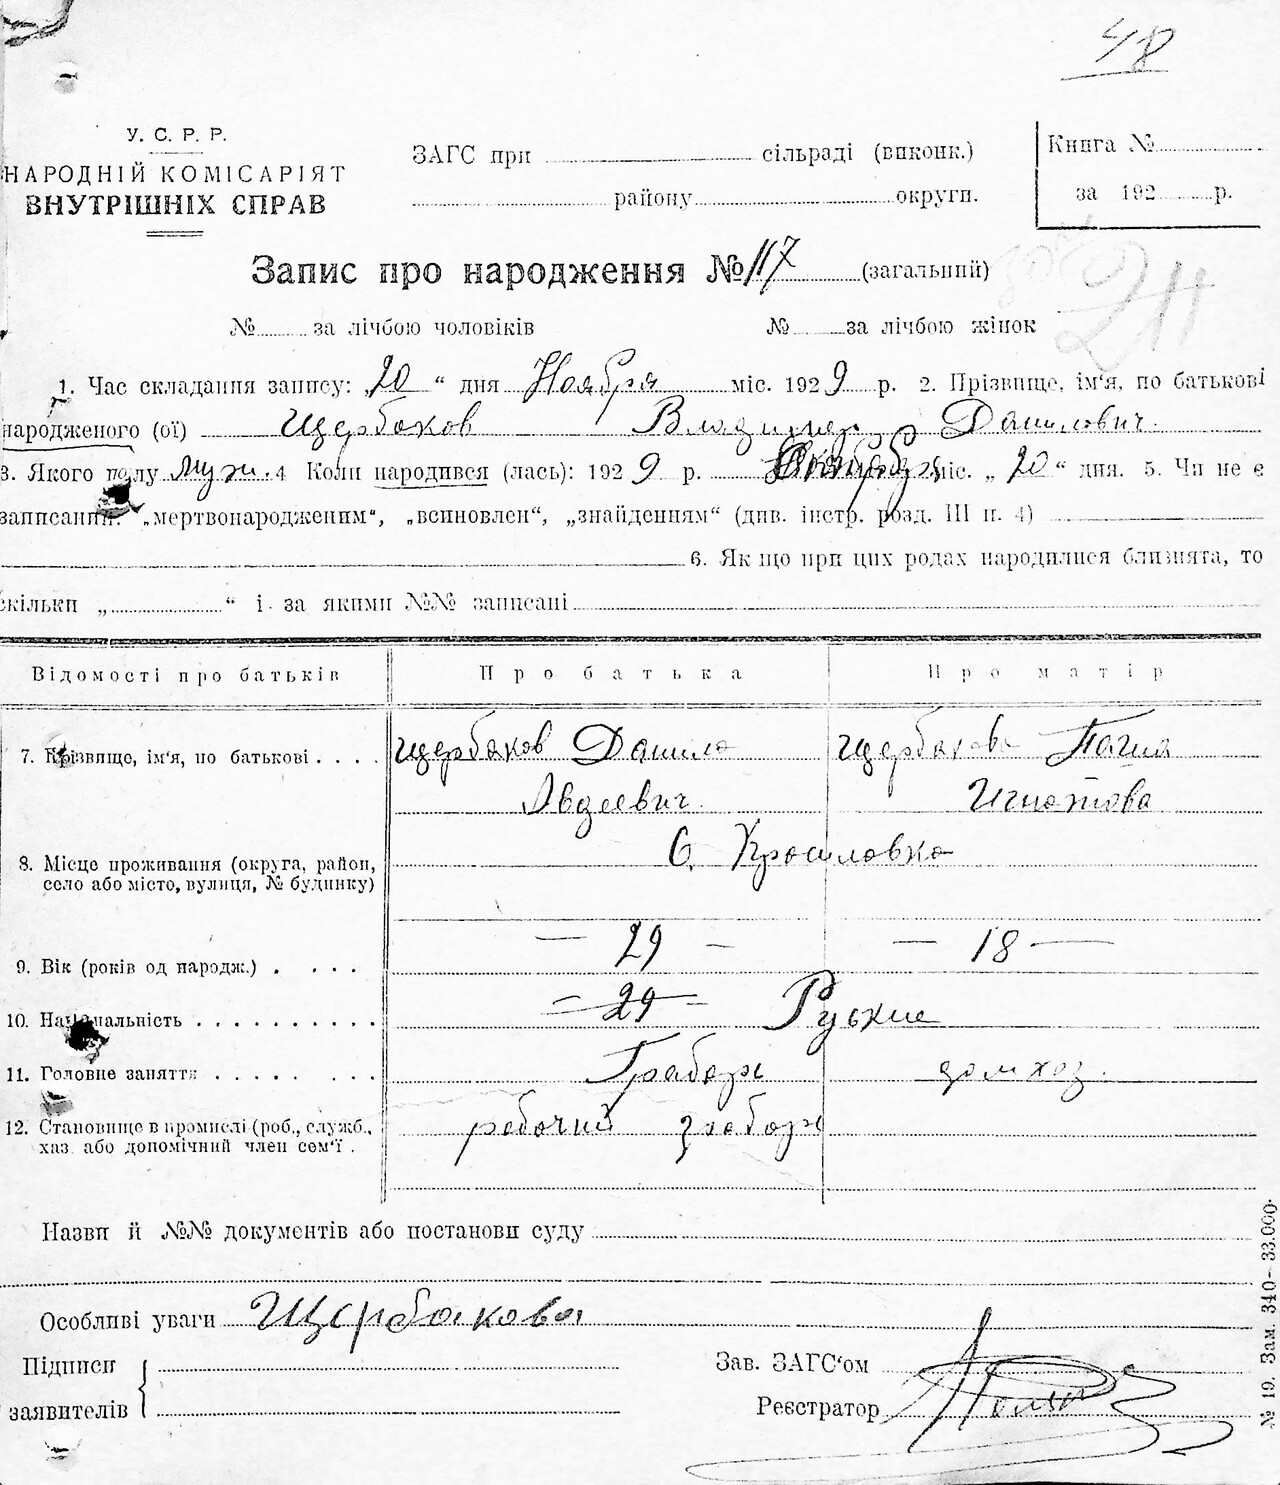 48
У. С. Р. Р.
НАРОДНІЙ КОМІСАРІЯТ
ВНУТРІШНІХ СПРАВ
ЗАГС при сільраді (виконк.)
району округи.
Книга №
за 192 р.
Запис про народження № 117 (загальний)
211
№ за лічбою чоловіків № за лічбою жінок
1. Час складання запису: 20 “ дня Ноября міс. 1929 р. 2. Прізвище, ім‘я, по батькові
народженого (ої) Щербаков Владимир Данилович.
3. Якого полу муж. 4 Коли народився (лась): 1929 р. міс. „ 20 “ дня. 5. Чи не є
записаний: „мертвонародженим“, „всиновлен“, „знайденням“ (див. інстр. розд. III п. 4)
6. Як що при цих родах народилися близнята, то
скільки „ “ і за якими №№ записані
Відомості про батьків Про батька Про матір
7. Прізвище, ім‘я, по батькові . . . . Щербаков Данило Щербакова
Авдеевич Игнатова
8. Місце проживання (округа, район, С.
село або місто, вулиця, № будинку)
9. Вік (років од народж.) . . . . — 29 — — 18 —
10. Національність . . . . . . . . . . 29 Руские
11. Головне заняття . . . . . . . . Грабарь домхоз.
12. Становище в промислі (роб., служб., рабочий грабарь
хаз або допомічний член сем‘ї .
Назви й №№ документів або постанови суду
Особливі уваги Щербакова
Підписи
заявителів
Зав. ЗАГС‘ом
Реєстратор
№ 19. Зам. 340– 33.000.